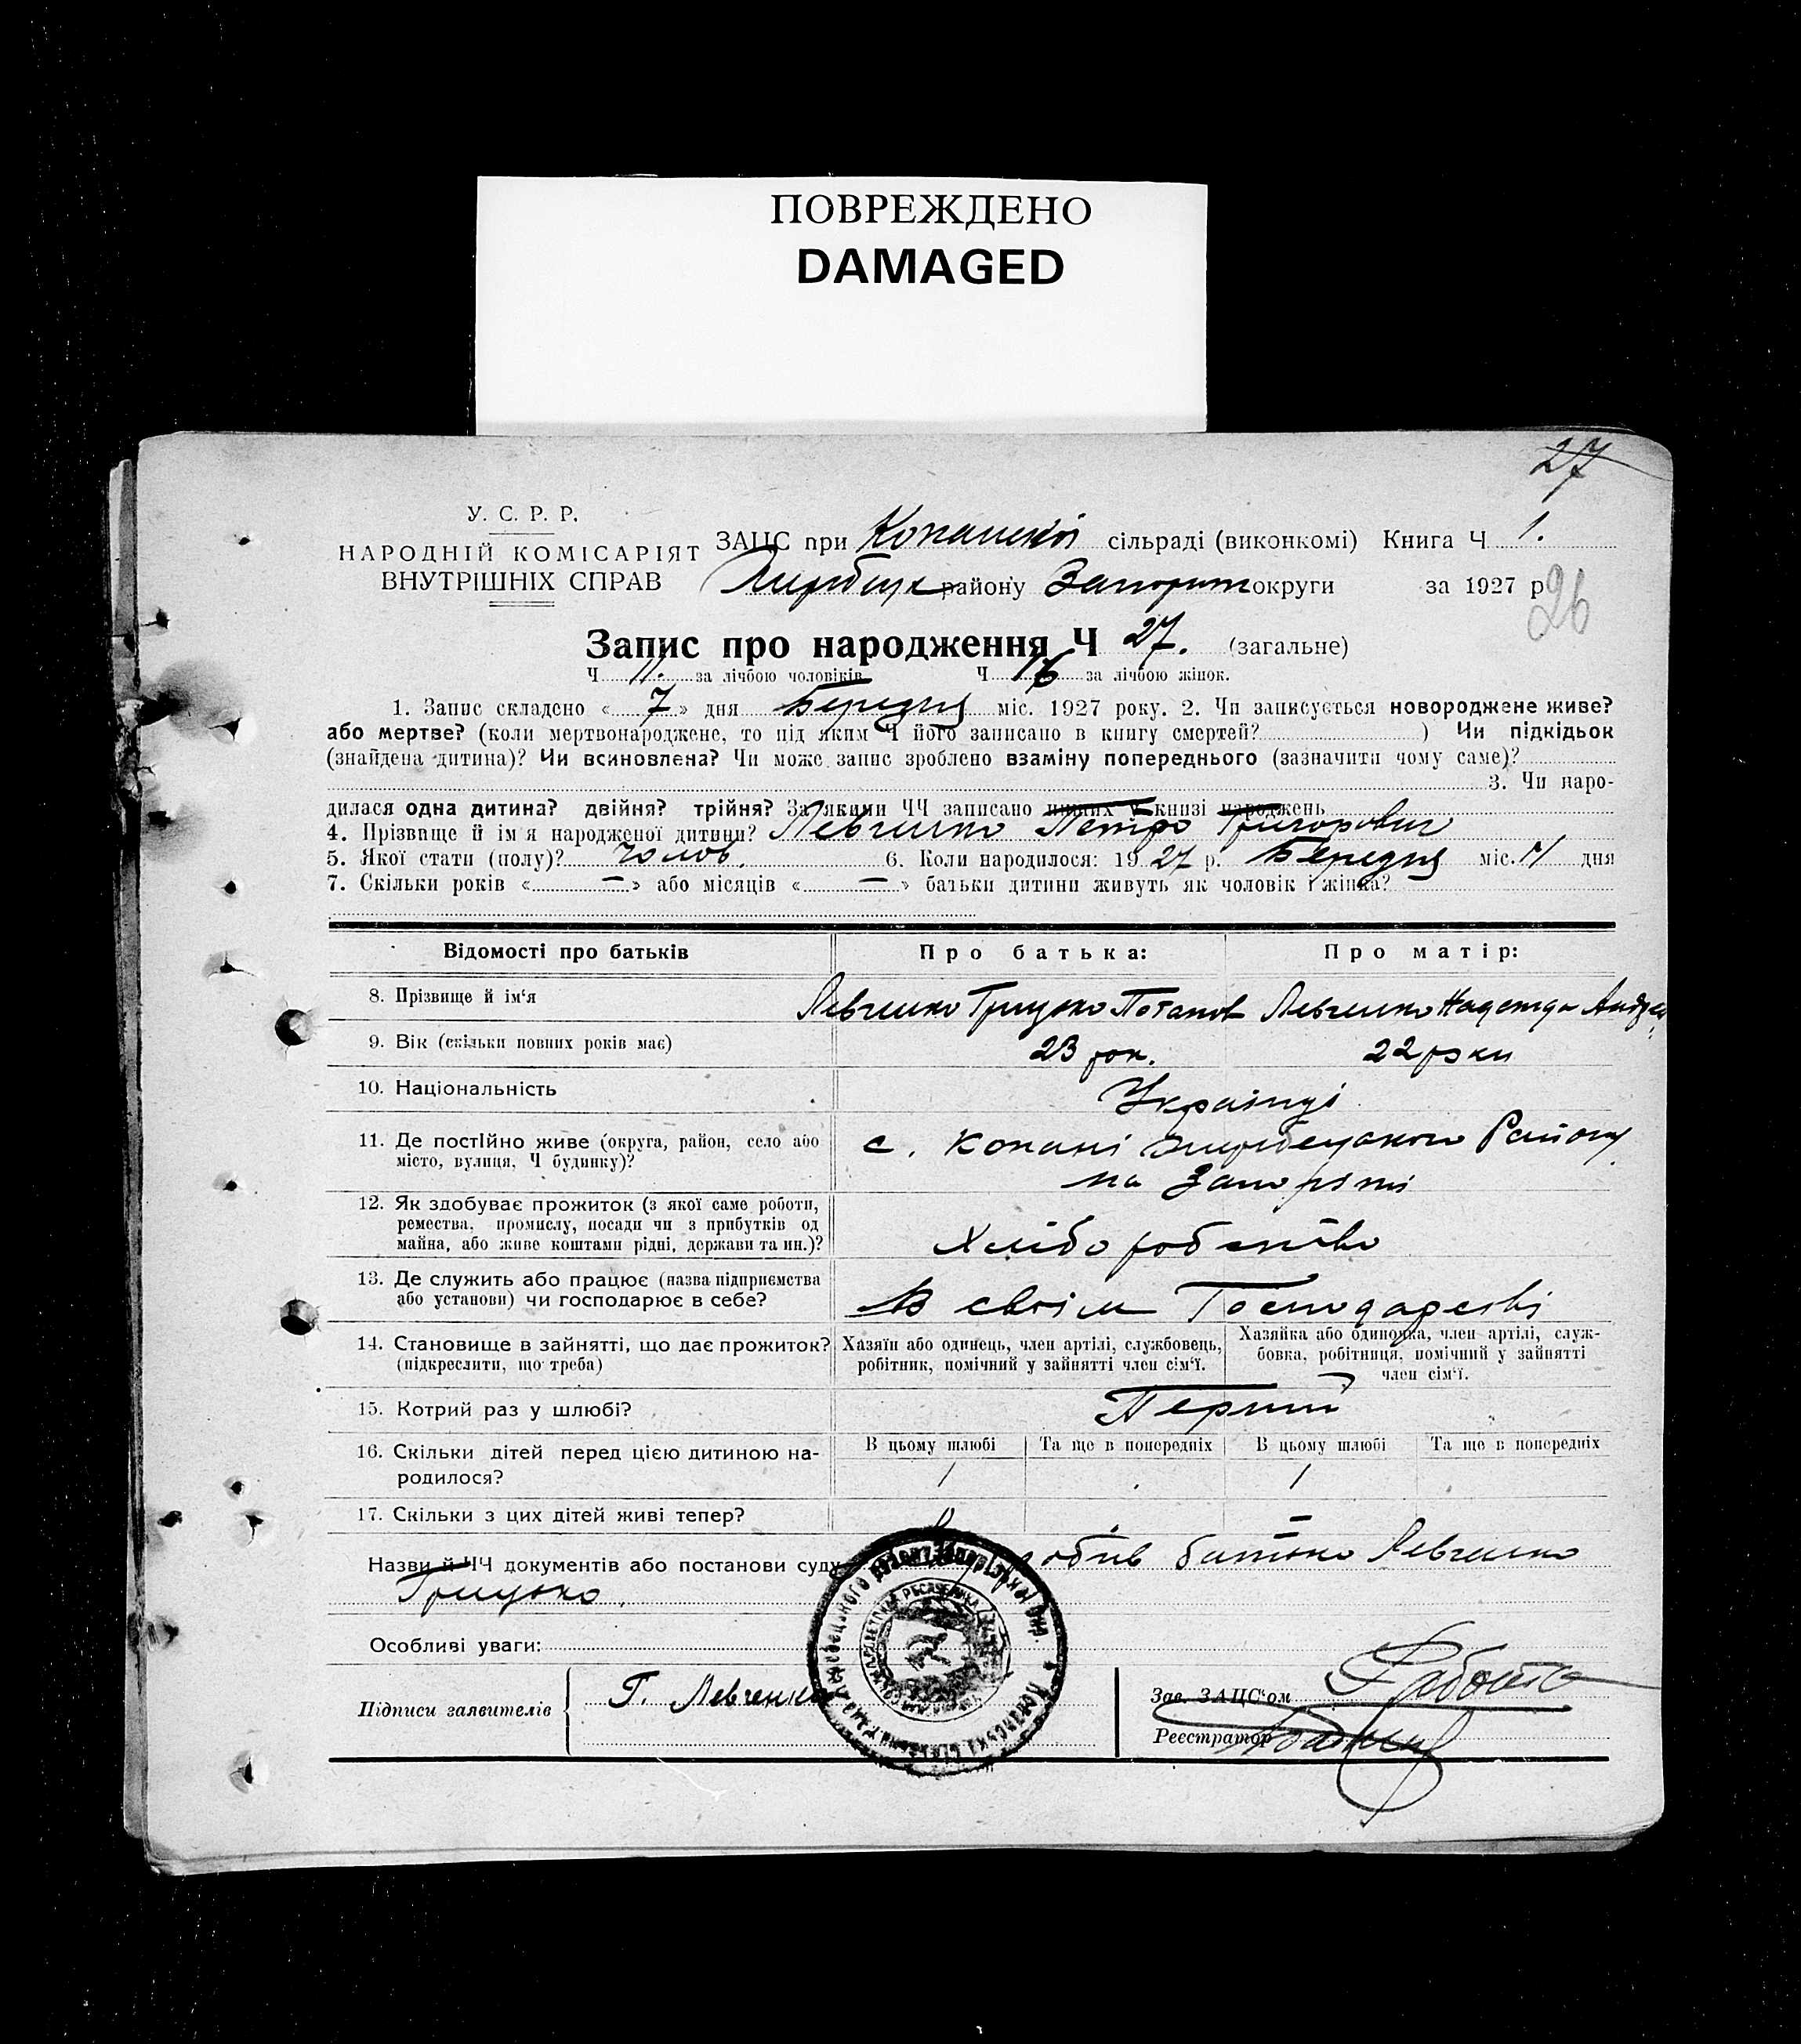 ПОВРЕЖДЕНО
DAMAGED
27
У. С. Р. Р.
НАРОДНІЙ КОМІСАРІЯТ
ВНУТРІШНІХ СПРАВ
ЗАЦС при Копанській сільраді (виконкомі) Книга Ч 1.
району Запоріж округи за 1927 р
26
Запис про народження Ч 27. (загальне)
Ч 11. за лічбою чоловіків Ч 16 за лічбою жінок.
1. Запис складено « 7 » дня Березня міс. 1927 року. 2. Чи записується новороджене живе?
або мертве? (коли мертвонароджене, то під яким Ч його записано в книгу смертей? ) Чи підкідьок
(знайдена дитина)? Чи всиновлена? Чи може запис зроблено взаміну попереднього (зазначити чому саме)?
3. Чи наро-
дилася одна дитина? двійня? трійня? За якими ЧЧ записано инших у книзі народжень
4. Прізвище й ім'я народженої дитини? Левченко Петро Григорович
5. Якої стати (полу)? чолов. 6. Коли народилося: 19 27 р. Березня міс. дня
7. Скільки років « — » або місяців « — » батьки дитини живуть як чоловік і жінка?
Відомості про батьків
Про батька:
Про матір:
8. Прізвище й ім'я
Левченко Грицько Потапов
Левченко Надежда Андре
9. Вік (скільки повних років має)
23 рок.
22 роки
10. Національність
Українці
11. Де постійно живе (округа, район, село або
місто, вулиця, Ч будинку)?
с. Копані Району
на Запоріжі
12. Як здобуває прожиток (з якої саме роботи,
ремества, промислу, посади чи з прибутків од
майна, або живе коштами рідні, держави та ин.)?
Хліборобство
13. Де служить або працює (назва підприємства
або установи) чи господарює в себе?
В своїм Господарстві
14. Становище в зайнятті, що дає прожиток?
(підкреслити, що треба)
Хазяїн або одинець, член артілі, службовець,
робітник, помічний у зайнятті член сім'ї.
Хазяйка або одиночка, член артілі, служ-
бовка, робітниця, помічний у зайнятті
член сім'ї.
15. Котрий раз у шлюбі?
Перший
16. Скільки дітей перед цією дитиною на-
родилося?
В цьому шлюбі
Та ще в попередніх
В цьому шлюбі
Та ще в попередніх
1
1
17. Скільки з цих дітей живі тепер?
—
Назви й ЧЧ документів або постанови суду батько Левченко
Грицько.
Особливі уваги:
Підписи заявителів
Г. Левченко
Зав. ЗАЦС'ом
Реєстратор